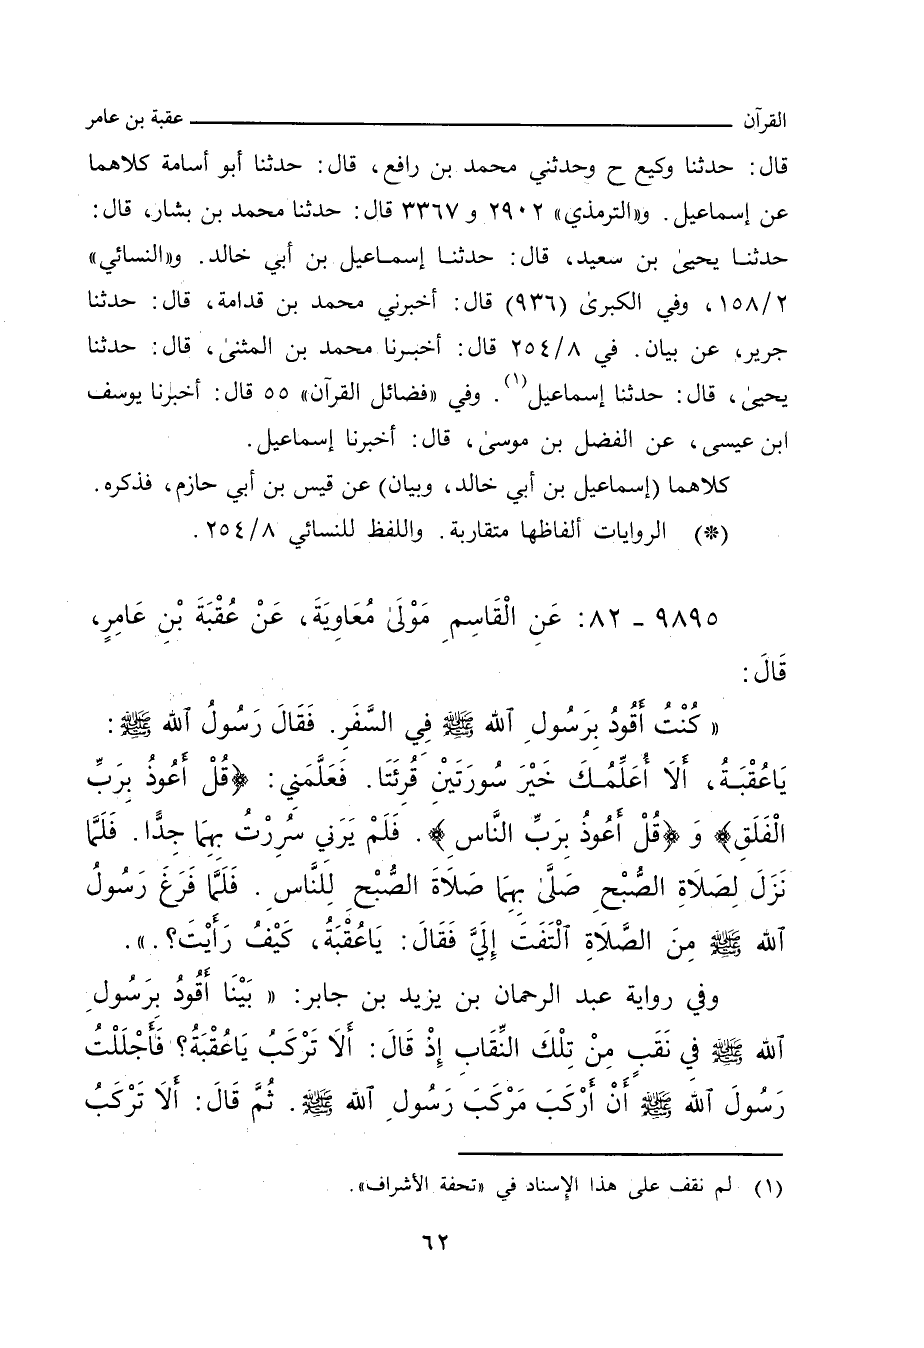 القرآن ــــــــــــــــــــ عقبة بن عامر
قال: حدثنا وكيع ح وحدثني محمد بن رافع، قال: حدثنا أبو أسامة كلاهما
عن إسماعيل. و«الترمذي» ٢٩٠٢ و ٣٣٦٧ قال: حدثنا محمد بن بشار، قال:
حدثنا يحيىٰ بن سعيد، قال: حدثنا إسماعيل بن أبي خالد. و«النسائي»
١٥٨/٢، وفي الكبرىٰ (٩٣٦) قال: أخبرني محمد بن قدامة، قال: حدثنا
جرير، عن بيان. في ٢٥٤/٨ قال: أخبرنا محمد بن المثنىٰ، قال: حدثنا
يحيىٰ، قال: حدثنا إسماعيل(١). وفي «فضائل القرآن» ٥٥ قال: أخبرنا يوسف
ابن عيسى، عن الفضل بن موسىٰ، قال: أخبرنا إسماعيل.
كلاهما (إسماعيل بن أبي خالد، وبيان) عن قيس بن أبي حازم، فذكره.
(*) الروايات ألفاظها متقاربة. واللفظ للنسائي ٢٥٤/٨.
٩٨٩٥ ـ ٨٢: عَنِ الْقَاسِمِ مَوْلَىٰ مُعَاوِيَةَ، عَنْ عُقْبَةَ بْنِ عَامِرٍ،
قَالَ:
« كُنْتُ أَقُودُ بِرَسُولِ ٱلله ﷺ فِي السَّفَرِ. فَقَالَ رَسُولُ ٱلله ﷺ:
يَاعُقْبَةُ، أَلَا أُعَلِّمُكَ خَيْرَ سُورَتَيْنِ قُرِئَتَا. فَعَلَّمَنِي: ﴿قُلْ أَعُوذُ بِرَبِّ
الْفَلَقِ﴾ وَ ﴿قُلْ أَعُوذُ بِرَبِّ النَّاسِ﴾. فَلَمْ يَرَنِي سُرِرْتُ بِهِمَا جِدًّا. فَلَمَّا
نَزَلَ لِصَلَاةِ الصُّبْحِ صَلَّىٰ بِهِمَا صَلَاةَ الصُّبْحِ لِلنَّاسِ. فَلَمَّا فَرَغَ رَسُولُ
ٱلله ﷺ مِنَ الصَّلَاةِ ٱلْتَفَتَ إِلَيَّ فَقَالَ: يَاعُقْبَةُ، كَيْفَ رَأَيْتَ؟.».
وفي رواية عبد الرحمان بن يزيد بن جابر: « بَيْنَا أَقُودُ بِرَسُولِ
ٱلله ﷺ فِي نَقَبٍ مِنْ تِلْكَ النِّقَابِ إِذْ قَالَ: أَلَا تَرْكَبُ يَاعُقْبَةُ؟ فَأَجْلَلْتُ
رَسُولَ ٱلله ﷺ أَنْ أَرْكَبَ مَرْكَبَ رَسُولِ ٱلله ﷺ. ثُمَّ قَالَ: أَلَا تَرْكَبُ
(١) لم نقف على هذا الإسناد في «تحفة الأشراف».
٦٢